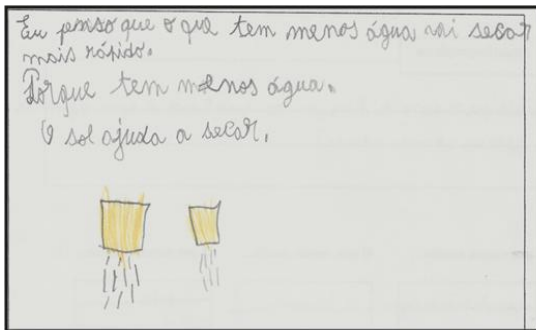 Eu penso que o que tem menos água vai secar
mais rápido.
Porque tem menos água.
O sol ajuda a secar.